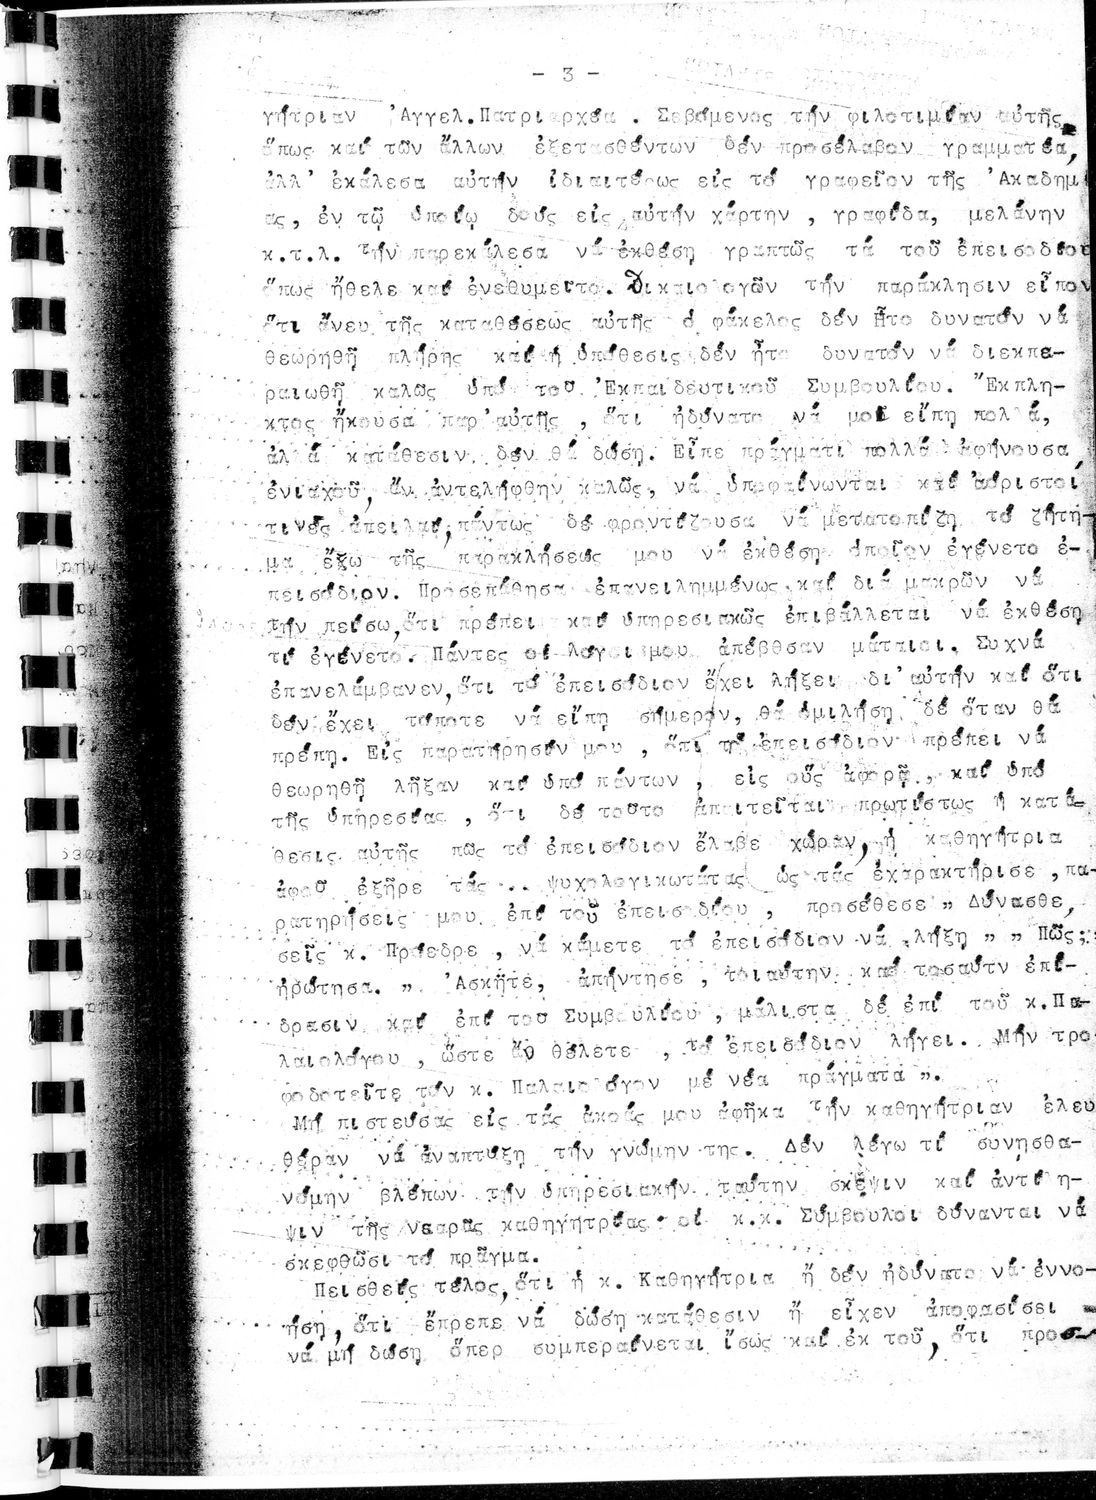 - 3 -
γήτριαν 'Αγγελ.Πατριαρχέα . Σεβόμενος τήν φιλοτιμίαν αὐτῆς
ὅπως καί τῶν ἄλλων ἐξετασθέντων δέν προσέλαβον γραμματέα,
ἀλλ' ἐκάλεσα αὐτήν ἰδιαιτέρως εἰς τό γραφεῖον τῆς 'Ακαδημ
ας, ἐν τῷ ὁποίῳ δούς εἰς αὐτήν χάρτην , γραφίδα, μελάνην
κ.τ.λ. τήν παρεκάλεσα νά ἐκθέση γραπτῶς τά τοῦ ἐπεισοδίου
ὅπως ἤθελε καί ἐνεθυμεῖτο. Δικαιολογῶν τήν παράκλησιν εἶπον
ὅτι ἄνευ τῆς καταθέσεως αὐτῆς ὁ φάκελος δέν ἦτο δυνατόν νά
θεωρηθῇ πλήρης καί ἡ ὑπόθεσις δέν ἦτο δυνατόν νά διεκπε-
ραιωθῇ καλῶς ὑπό τοῦ 'Εκπαιδευτικοῦ Συμβουλίου. "Εκπλη-
κτος ἤκουσα παρ'αὐτῆς , ὅτι ἠδύνατο νά μοῦ εἴπη πολλά,
ἀλλά κατάθεσιν δέν θά δώση. Εἶπε πράγματι πολλά ἀφήνουσα
ἐνιαχοῦ, ἄν ἀντελήφθην καλῶς, νά ὑποφαίνωνται καί ἀόριστοι
τινές ἀπειλαί, πάντως δέ φροντίζουσα νά μετατοπίζη τό ζήτη-
μα ἔξω τῆς παρακλήσεως μου νά ἐκθέση ὁποῖον ἐγένετο ἐ-
πεισόδιον. Προσεπάθησα ἐπανειλημμένως καί διά μακρῶν νά
τήν πείσω,ὅτι πρέπει καί ὑπηρεσιακῶς ἐπιβάλλεται νά ἐκθέση
τί ἐγένετο. Πάντες οἱ λόγοι μου ἀπέβησαν μάταιοι. Συχνά
ἐπανελάμβανεν,ὅτι τό ἐπεισόδιον ἔχει λήξει δι'αὐτήν καί ὅτι
δέν ἔχει τίποτε νά εἴπη σήμερον, θά ὁμιλήση δέ ὅταν θά
πρέπη. Εἰς παρατήρησίν μου , ὅτι τό ἐπεισόδιον πρέπει νά
θεωρηθῇ λῆξαν καί ὑπό πάντων , εἰς οὕς ἀφορᾷ , καί ὑπό
τῆς ὑπηρεσίας , ὅτι δέ τοῦτο ἀπαιτεῖται πρωτίστως ἡ κατά-
θεσις αὐτῆς πῶς τό ἐπεισόδιον ἔλαβε χώραν, ἡ καθηγήτρια
ἀφοῦ ἐξῆρε τάς .. ψυχολογικωτάτας ὡς τάς ἐχαρακτήρισε ,πα-
ρατηρήσεις μου ἐπί τοῦ ἐπεισοδίου , προσέθεσε " Δύνασθε,
σεῖς κ. Πρόεδρε , νά κάμετε τό ἐπεισόδιον νά λήξη " " Πῶς;
ἠρώτησα. " 'Ασκῆτε, ἀπήντησε , τοιαύτην καί τοσαύτν ἐπί-
δρασιν καί ἐπί τοῦ Συμβουλίου , μάλιστα δέ ἐπί τοῦ κ.Πα-
λαιολόγου , ὥστε ἄν θέλετε , τό ἐπεισόδιον λήγει. Μήν τρο
φοδοτεῖτε τόν κ. Παλαιολόγον μέ νέα πράγματα ".
Μή πιστεύσας εἰς τάς ἀκοάς μου ἀφῆκα τήν καθηγήτριαν ἐλευ
θέραν νά ἀναπτύξη τήν γνώμην της. Δέν λέγω τί συνησθα-
νόμην βλέπων τήν ὑπηρεσιακήν ταύτην σκέψιν καί ἀντίλη-
ψιν τῆς νεαρᾶς καθηγητρίας οἱ κ.κ. Σύμβουλοι δύνανται νά
σκεφθῶσι τό πρᾶγμα.
Πεισθείς τέλος,ὅτι ἡ κ. Καθηγήτρια ἤ δέν ἠδύνατο νά ἐννο-
ήση, ὅτι ἔπρεπε νά δώση κατάθεσιν ἤ εἶχεν ἀποφασίσει
νά μή δώση ὅπερ συμπεραίνεται ἴσως καί ἐκ τοῦ, ὅτι προσ-